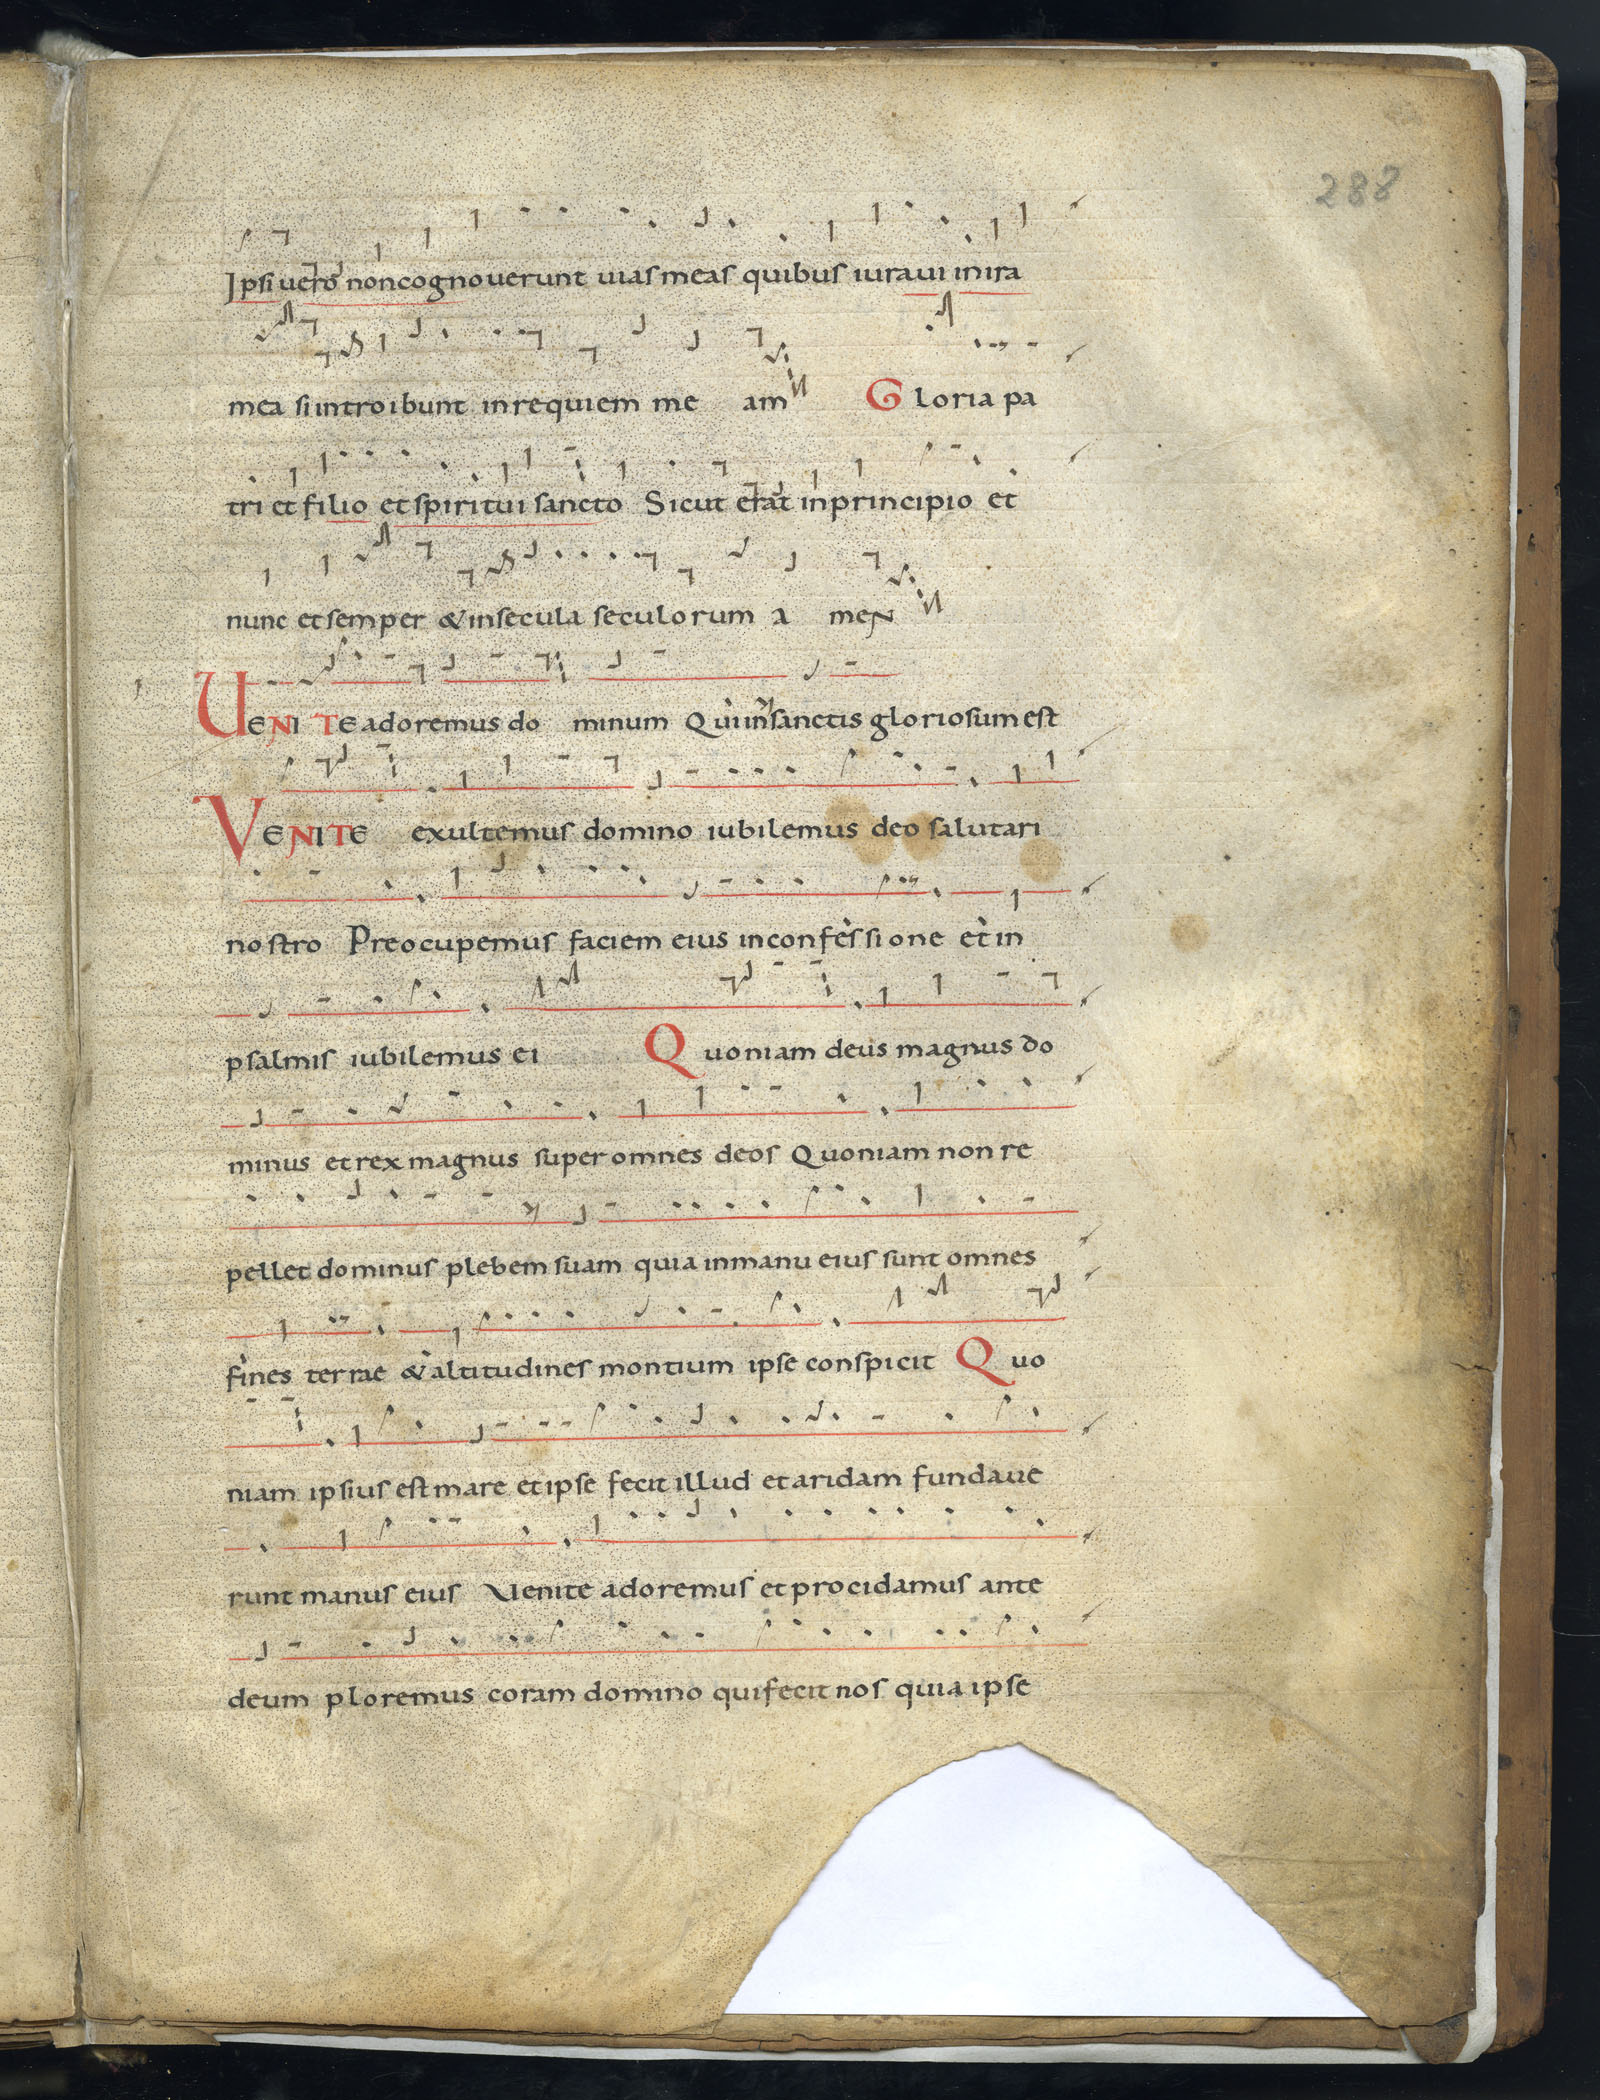 288
Ipsi vero non cognoverunt uias meas quibus iuraui in ira
mea si introibunt in requiem me am Gloria pa
tri et filio et spiritui sancto Sicut erat in principio et
nunc et semper & in secula seculorum a meN
UENITE adoremus do minum Qui in sanctis gloriosum est
VENITE exultemus domino iubilemus deo salutari
nostro Preocupemus faciem eius in confessione et in
psalmis iubilemus ei Quoniam deus magnus do
minus et rex magnus super omnes deos Quoniam non re
pellet dominus plebem suam quia in manu eius sunt omnes
fines terrae & altitudines montium ipse conspicit Quo
niam ipsius est mare et ipse fecit illud et aridam fundaue
runt manus eius Venite adoremus et procidamus ante
deum ploremus coram domino qui fecit nos quia ipse